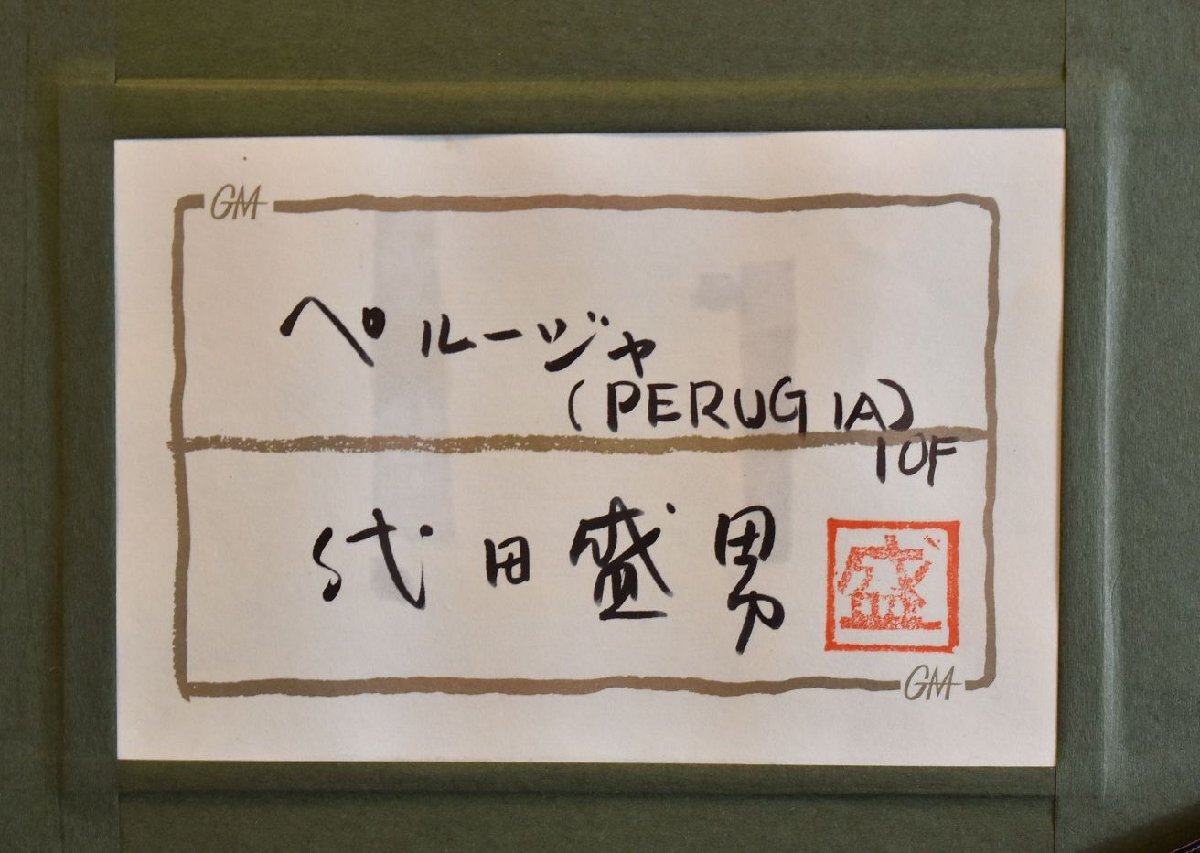 GM
ペルージャ
(PERUGIA)
10F
代田盛男
盛
GM